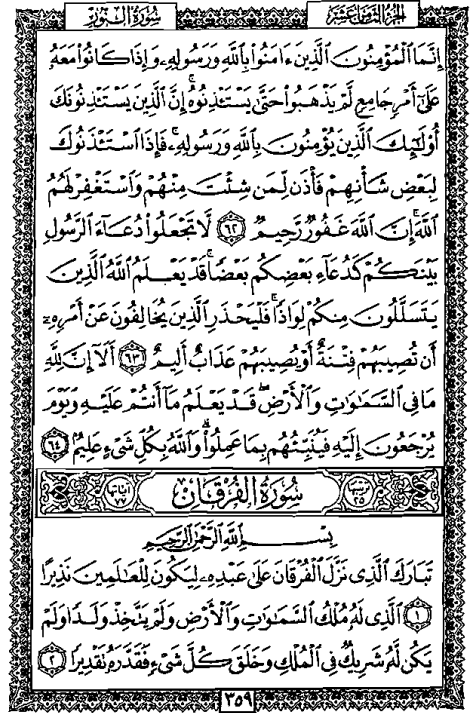 الجزء الثامن عشر
سورة النور
إِنَّمَا ٱلْمُؤْمِنُونَ ٱلَّذِينَ ءَامَنُوا۟ بِٱللَّهِ وَرَسُولِهِۦ وَإِذَا كَانُوا۟ مَعَهُۥ
عَلَىٰٓ أَمْرٍ جَامِعٍ لَّمْ يَذْهَبُوا۟ حَتَّىٰ يَسْتَـْٔذِنُوهُ ۚ إِنَّ ٱلَّذِينَ يَسْتَـْٔذِنُونَكَ
أُو۟لَـٰٓئِكَ ٱلَّذِينَ يُؤْمِنُونَ بِٱللَّهِ وَرَسُولِهِۦ ۚ فَإِذَا ٱسْتَـْٔذَنُوكَ
لِبَعْضِ شَأْنِهِمْ فَأْذَن لِّمَن شِئْتَ مِنْهُمْ وَٱسْتَغْفِرْ لَهُمُ
ٱللَّهَ ۚ إِنَّ ٱللَّهَ غَفُورٌ رَّحِيمٌ ٦٢ لَّا تَجْعَلُوا۟ دُعَآءَ ٱلرَّسُولِ
بَيْنَكُمْ كَدُعَآءِ بَعْضِكُم بَعْضًا ۚ قَدْ يَعْلَمُ ٱللَّهُ ٱلَّذِينَ
يَتَسَلَّلُونَ مِنكُمْ لِوَاذًا ۚ فَلْيَحْذَرِ ٱلَّذِينَ يُخَالِفُونَ عَنْ أَمْرِهِۦٓ
أَن تُصِيبَهُمْ فِتْنَةٌ أَوْ يُصِيبَهُمْ عَذَابٌ أَلِيمٌ ٦٣ أَلَآ إِنَّ لِلَّهِ
مَا فِى ٱلسَّمَـٰوَٰتِ وَٱلْأَرْضِ ۖ قَدْ يَعْلَمُ مَآ أَنتُمْ عَلَيْهِ وَيَوْمَ
يُرْجَعُونَ إِلَيْهِ فَيُنَبِّئُهُم بِمَا عَمِلُوا۟ ۗ وَٱللَّهُ بِكُلِّ شَىْءٍ عَلِيمٌۢ ٦٤
ترتيبها ٢٥ سورة الفرقان آياتها ٧٧
بِسْمِ ٱللَّهِ ٱلرَّحْمَـٰنِ ٱلرَّحِيمِ
تَبَارَكَ ٱلَّذِى نَزَّلَ ٱلْفُرْقَانَ عَلَىٰ عَبْدِهِۦ لِيَكُونَ لِلْعَـٰلَمِينَ نَذِيرًا
١ ٱلَّذِى لَهُۥ مُلْكُ ٱلسَّمَـٰوَٰتِ وَٱلْأَرْضِ وَلَمْ يَتَّخِذْ وَلَدًا وَلَمْ
يَكُن لَّهُۥ شَرِيكٌ فِى ٱلْمُلْكِ وَخَلَقَ كُلَّ شَىْءٍ فَقَدَّرَهُۥ تَقْدِيرًا ٢
٣٥٩